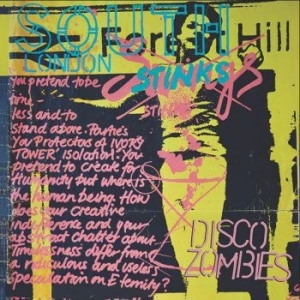 SOUTH
LONDON
Hill
STINKS
You pretend to be
less and to
stand above. Payne's
You Protectors of IVORY
TOWER isolation. You
pretend to create for
Humanity but where is
the human being. How
does your creative
indifference and your
abstract chatter about
Timelessness differ from
a ridiculous and useless
speculation on Eternity?
DISCO
ZOMBIES